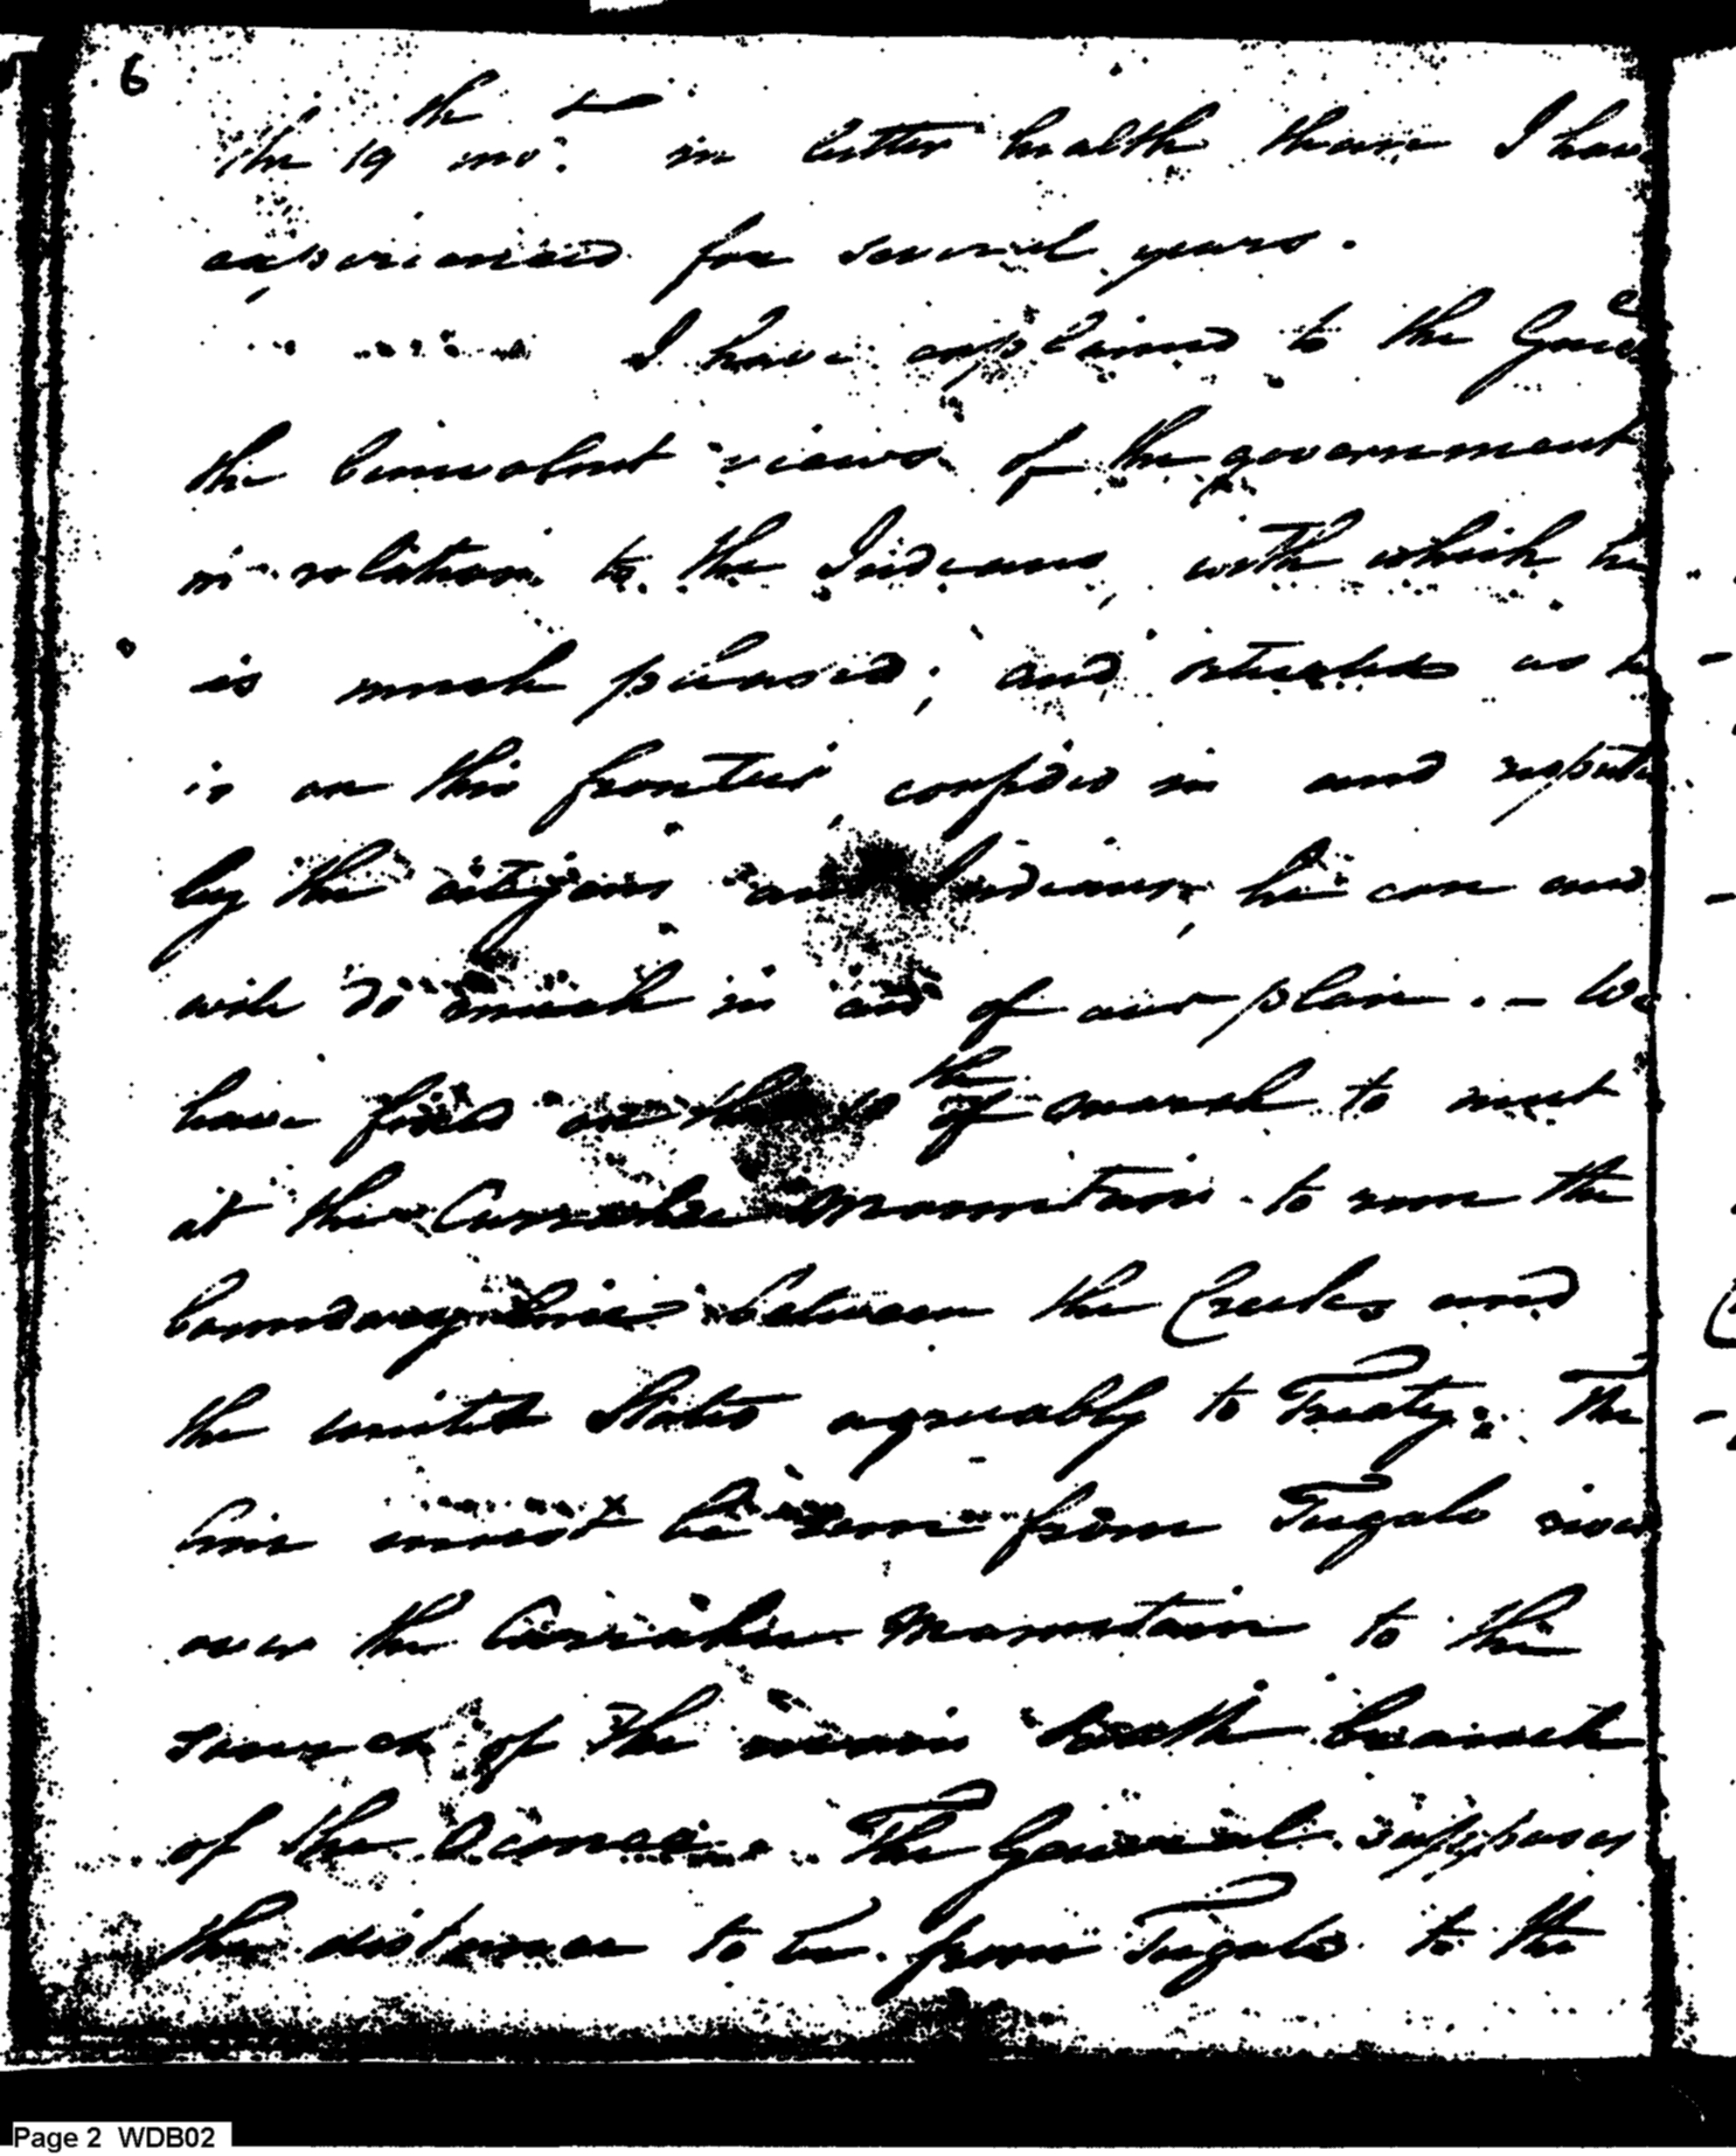 6
the 19th inst. in better health than I have
experienced for several years.
I have explained to the Genel
the benevolent views of the government
in relation to the Indians, with which he
is much pleased, and situated as he
is on this frontier confided in and respected
by the citizens and Indians, he can and
will do much in aid of our plan. — We
have fixed on the of march to meet
at the Currahee Mountain to run the
boundary line between the Creeks and
the United States agreeably to Treaty. The
line must be run from Tugalo river
over the Currahee Mountain to the
source of the main south branch
of the Oconee. The General supposes
the distance to be from Tugalo to the
Page 2 WDB02